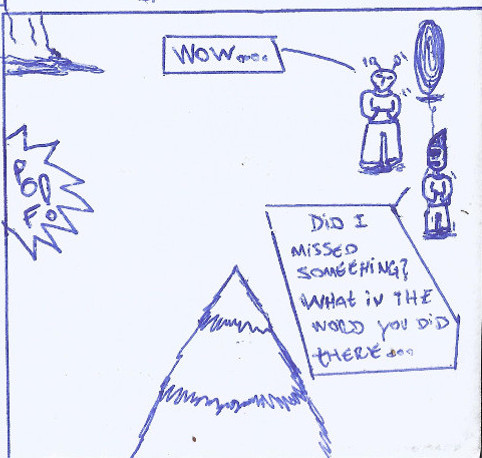 WOW....
POP
FO
DiD I
MiSSED
SOMETHING?
WHAT iN THE
WORLD YOU DiD
THERE...